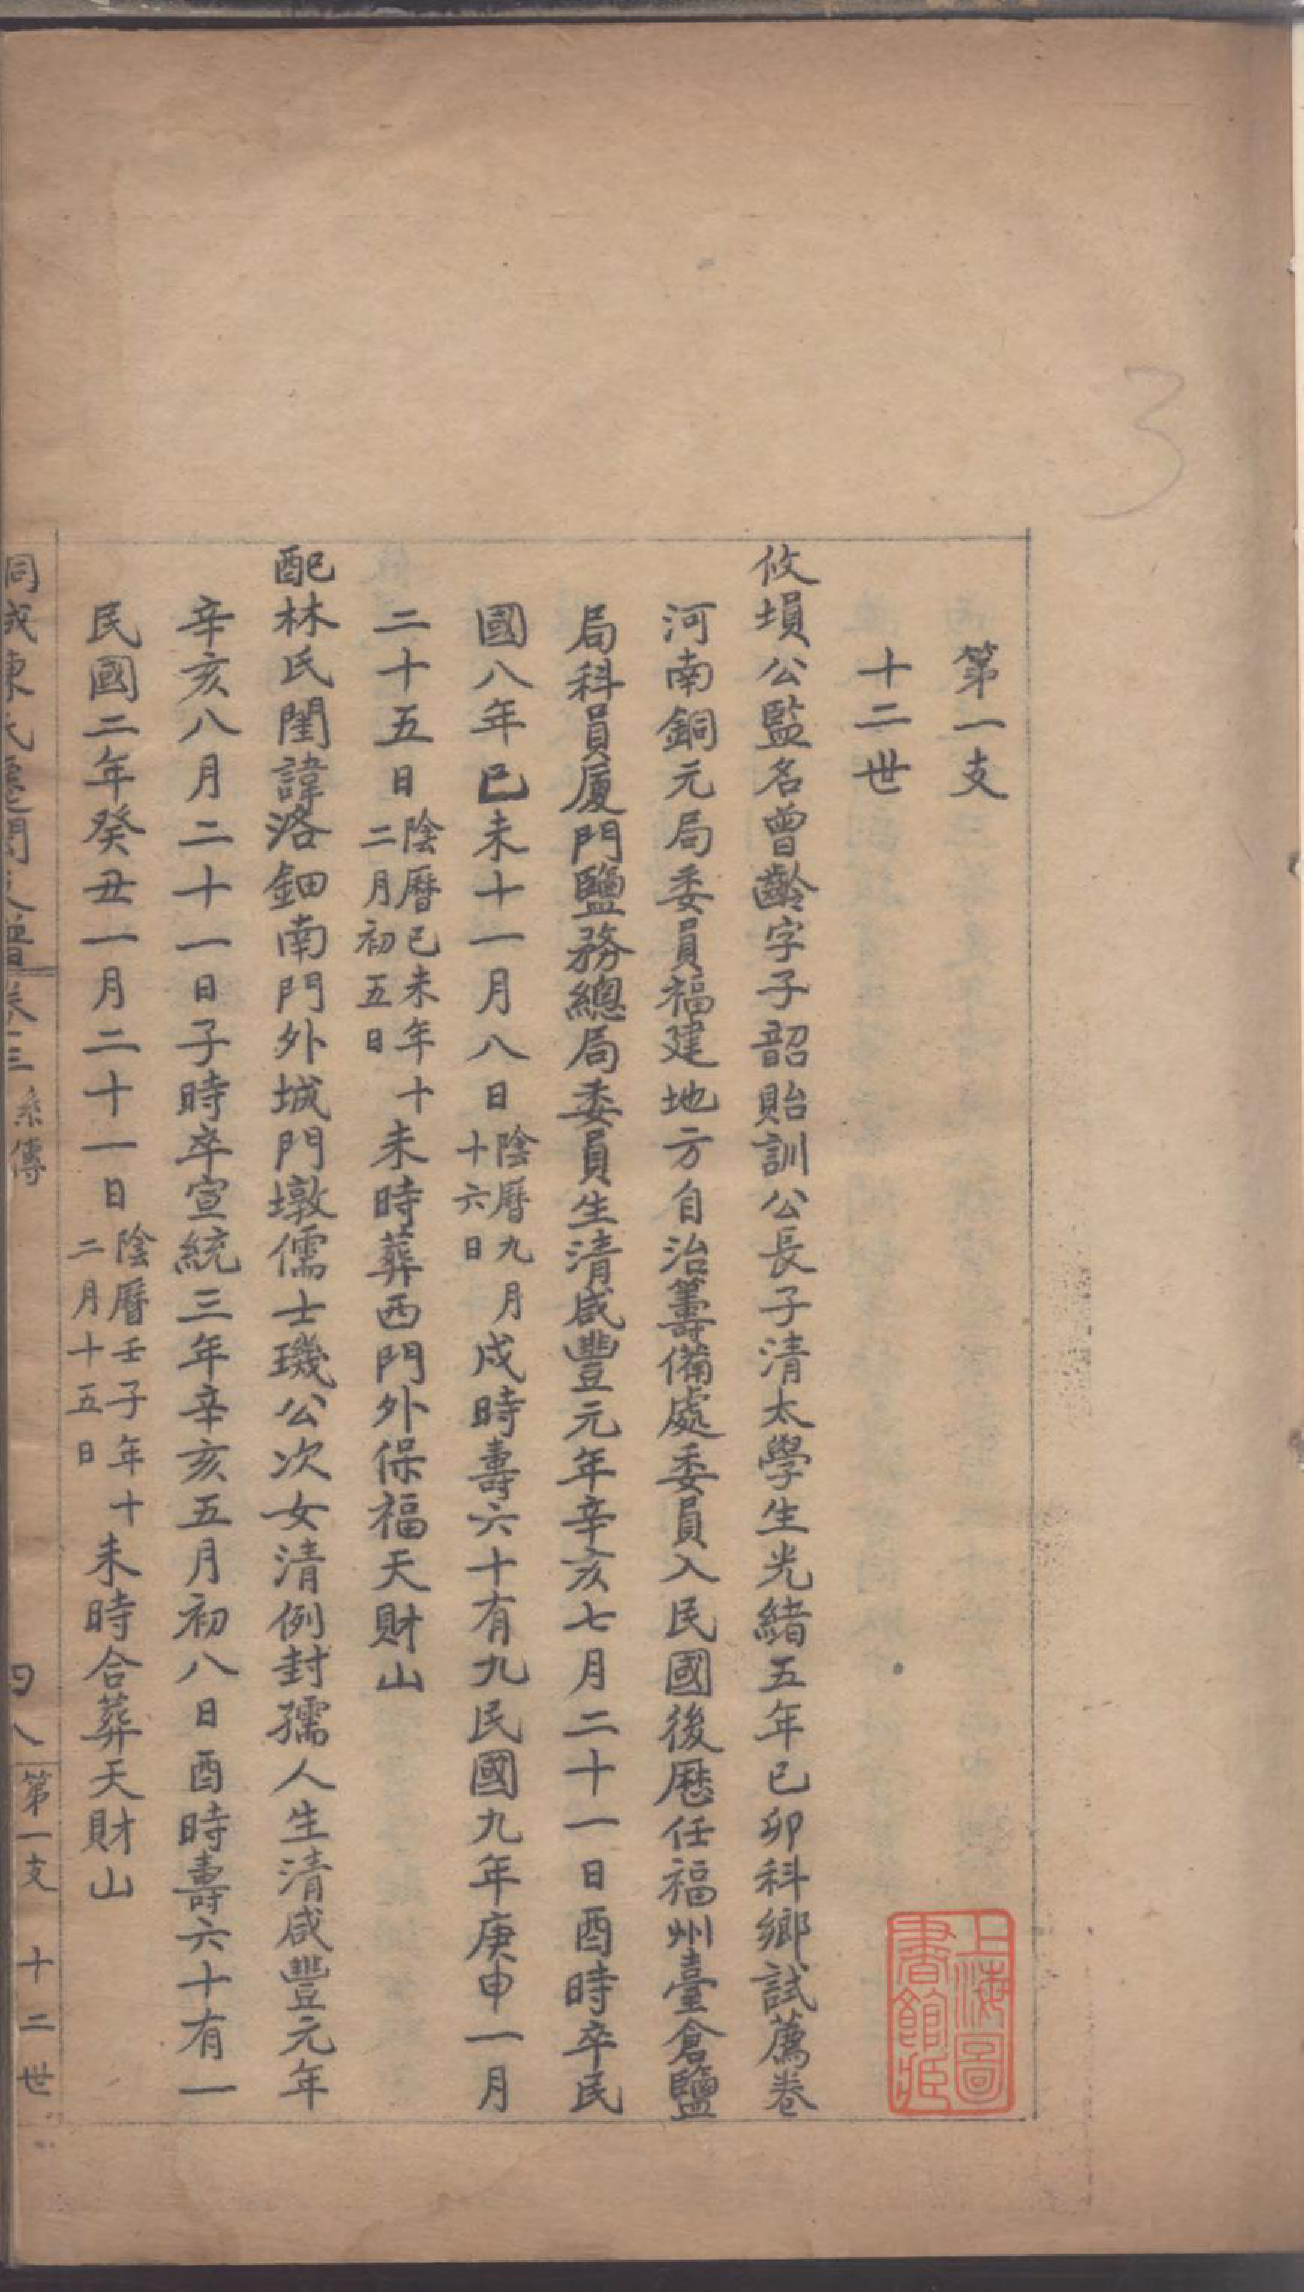 3
第一支
十二世
攸塤公監名曾齡字子韶貽訓公長子清太學生光緒五年己卯科鄉試薦卷
河南銅元局委員福建地方自治籌備處委員入民國後歷任福州臺倉鹽
局科員廈門鹽務總局委員生清咸豐元年辛亥七月二十一日酉時卒民
國八年已未十一月八日陰曆九月十六日戌時壽六十有九民國九年庚申一月
二十五日陰曆已未年十二月初五日未時葬西門外保福天財山
配林氏閨諱洛鈿南門外城門墩儒士璣公次女清例封孺人生清咸豐元年
辛亥八月二十一日子時卒宣統三年辛亥五月初八日酉時壽六十有一
民國二年癸丑一月二十一日陰曆壬子年十二月十五日未時合葬天財山
上海圖
書館藏
卷三 系傳
四八 第一支 十二世